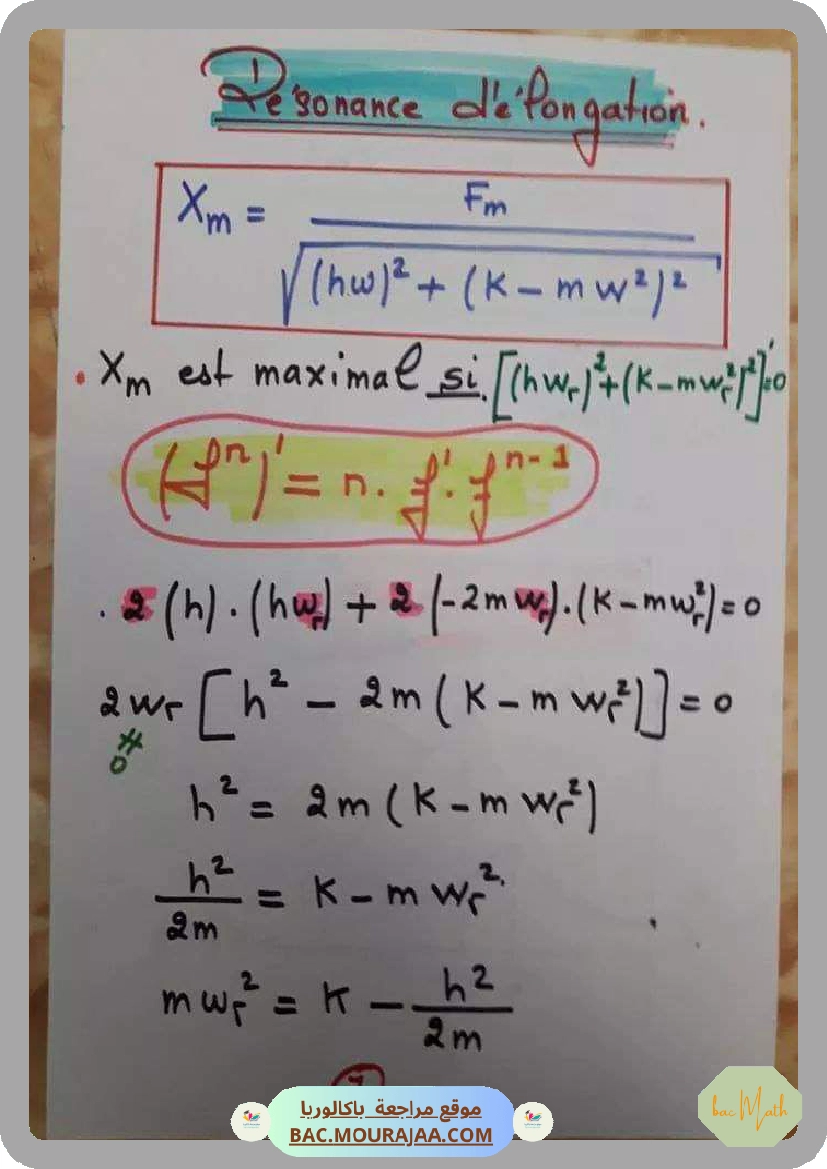 Résonance d'élongation.
Xm = Fm / √((hw)² + (K - m w²)²)
. Xm est maximal si. [(hwr)² + (K - mwr²)²]' = 0
(fⁿ)' = n. f'. fⁿ⁻¹
. 2 (h) . (hwr) + 2 (-2m wr) . (K - mwr²) = 0
2wr [h² - 2m (K - m wr²)] = 0
≠
0
h² = 2m (K - m wr²)
h²/2m = K - m wr²
m wr² = K - h²/2m
موقع مراجعة باكالوريا
BAC.MOURAJAA.COM
bac Math